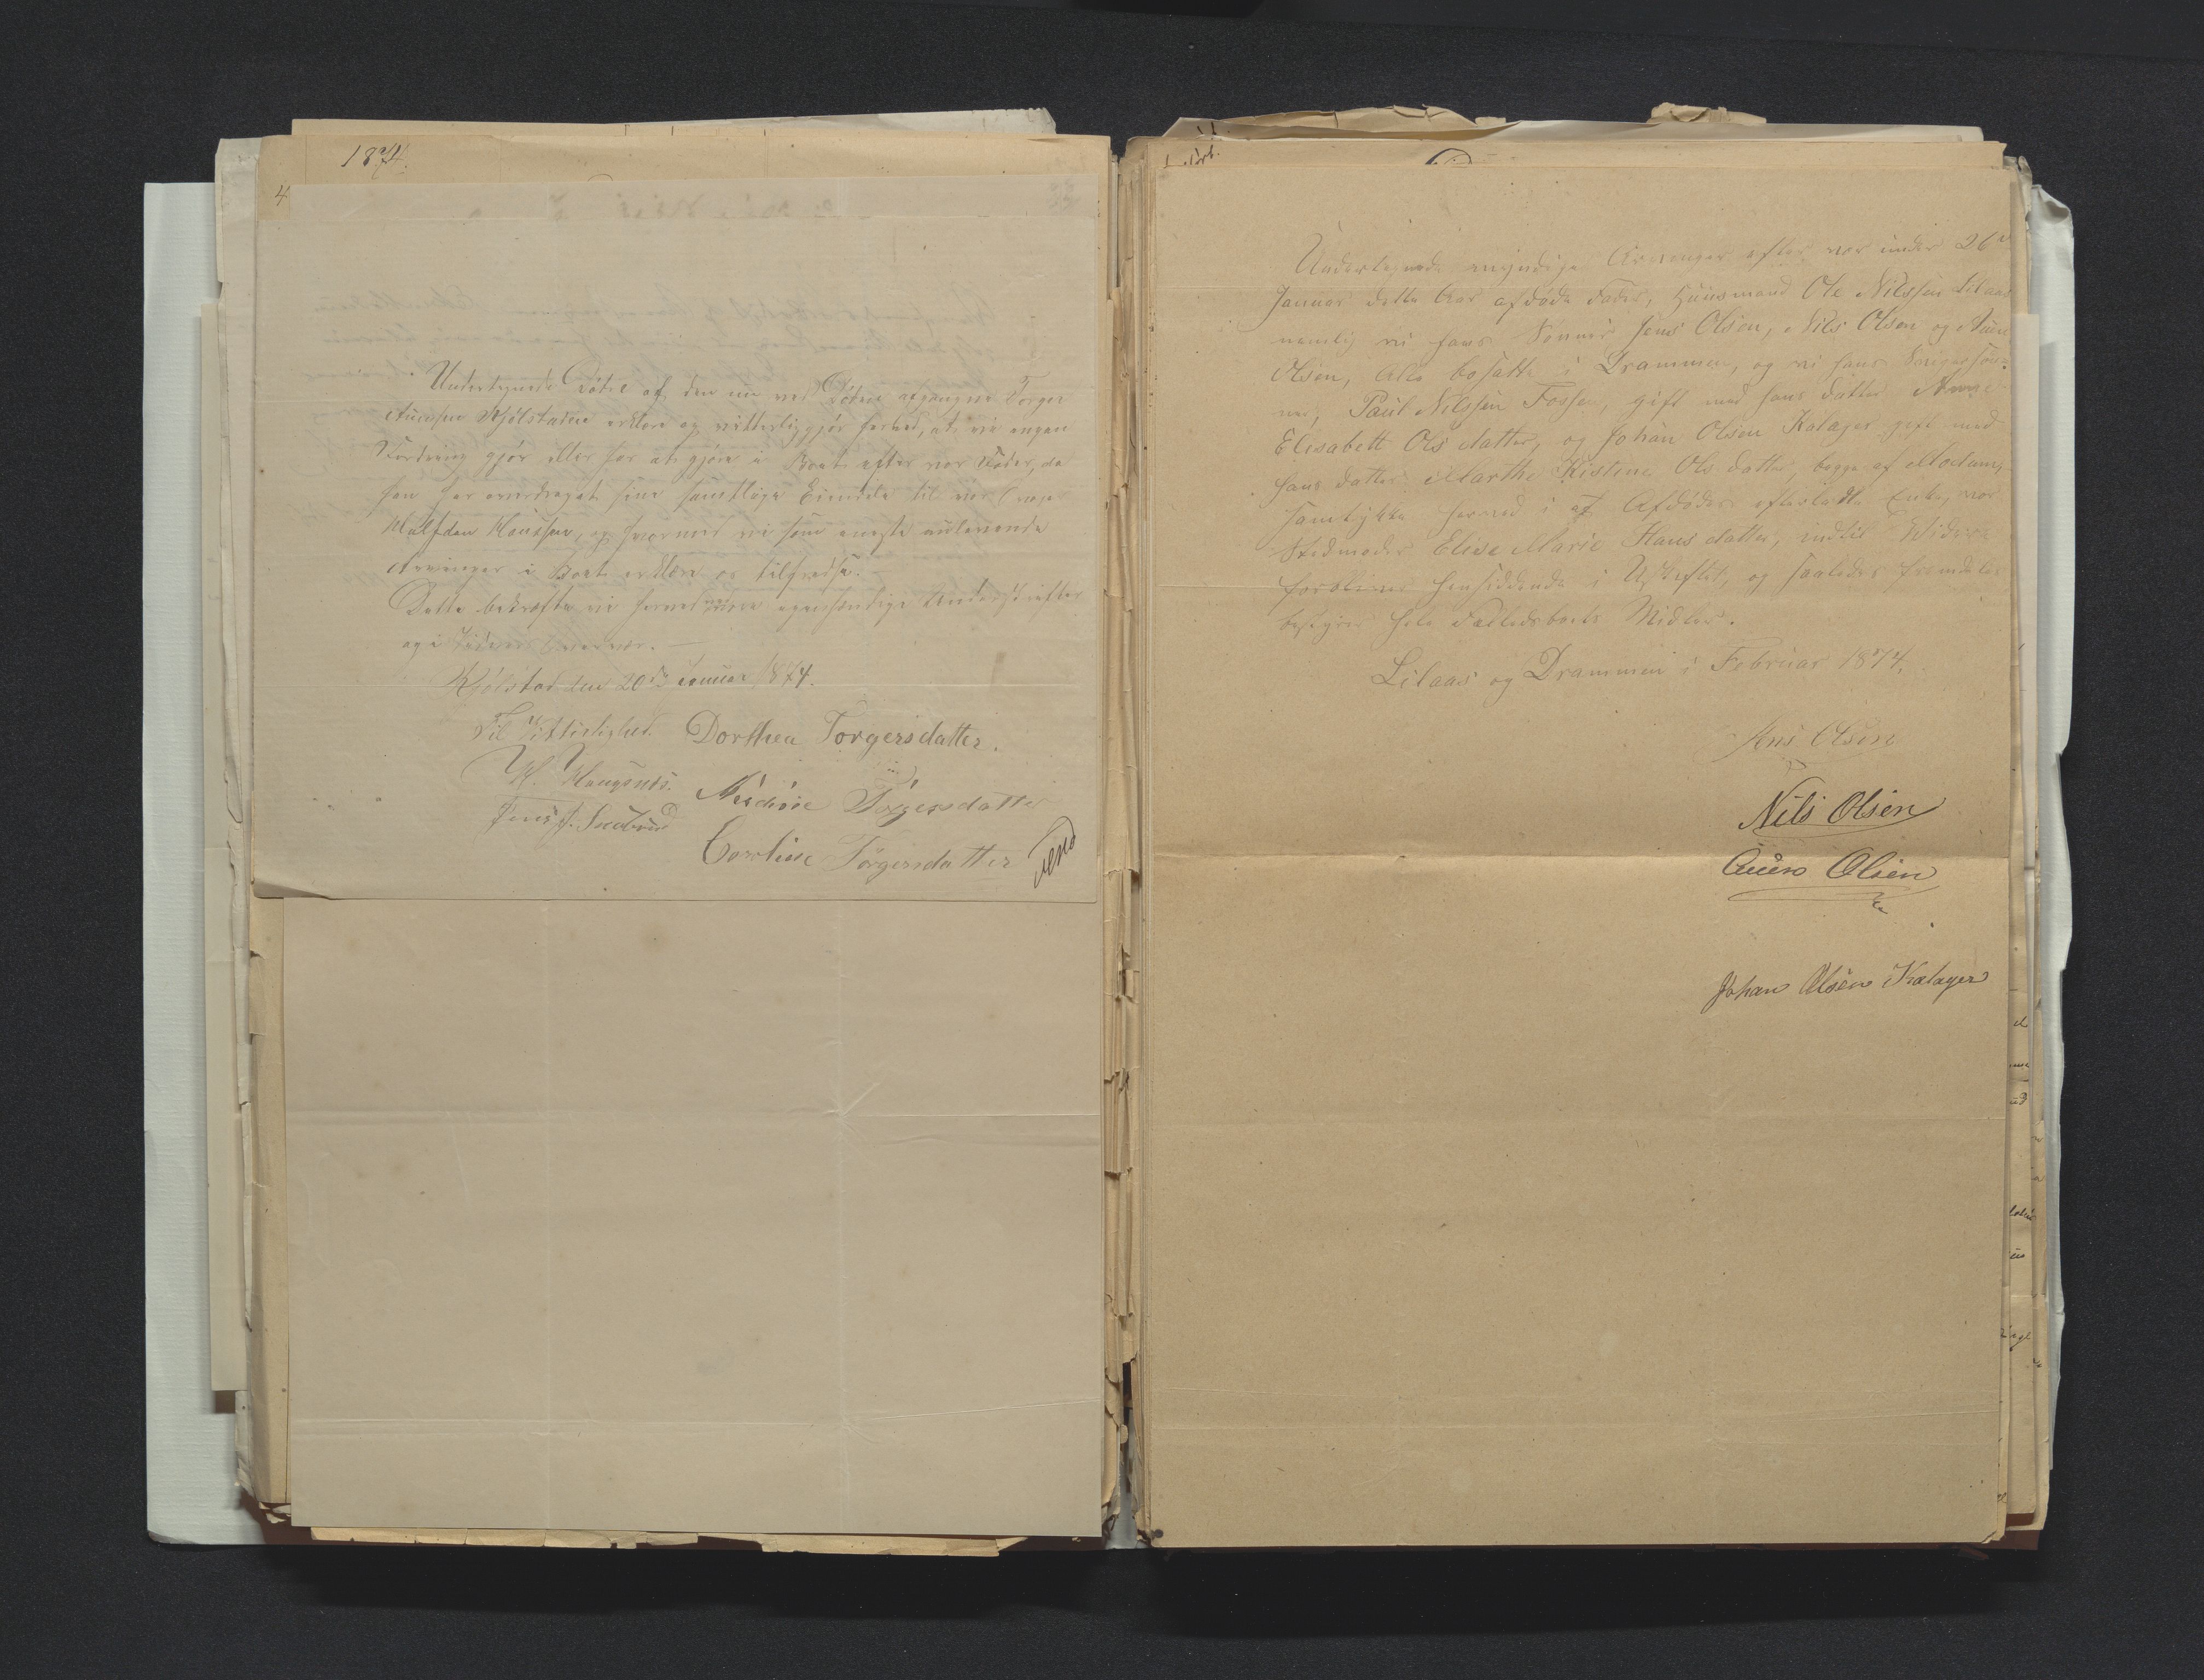 1874.
4
Undertegnede Døtre af den nu ved Døden afgangne Torger
Kjølstaden erklære og vitterliggjør herved, at vi ingen
Fordring gjør eller har at gjøre i Boet efter vor Fader, da
han har overdraget sine samtlige Eiendele til vor Svoger
Halfdan Hansen, og hvormed vi som eneste nulevende
Arvinger i Boet erklære os tilfredse. —
Dette bekræfte vi herved med vore egenhændige Underskrifter
og i Vidners Overvær. —
Kjølstad den 20de Januar 1874.
Til Vitterlighed.
Dorthea Torgersdatter.
H. Haugsnes.
Torgersdatter
Jens J.
Torgersdatter
Undertegnede myndige Arvinger efter vor under 26de
Januar dette Aar afdøde Fader, Huusmand Ole Nilssen Lilaas
nemlig vi hans Sønner Jens Olsen, Nils Olsen og
Olsen, alle bosatte i Drammen, og vi hans Svigersøn-
ner, Paul Nilssen Fosse, gift med hans Datter
Elisabett Olsdatter, og Johan Olsen Kalager gift med
hans Datter Marthe Kistine Olsdatter, begge af Modum,
samtykke herved i at Afdødes efterladte Enke, vor
Stedmoder Elise Marie Hansdatter, indtil Videre
forbliver hensiddende i Uskiftet, og saaledes fremdeles
bestyrer hele Fælledsboets Midler.
Lilaas og Drammen i Februar 1874.
Jens Olsen
Nils Olsen
Olsen
Johan Olsen Kalager